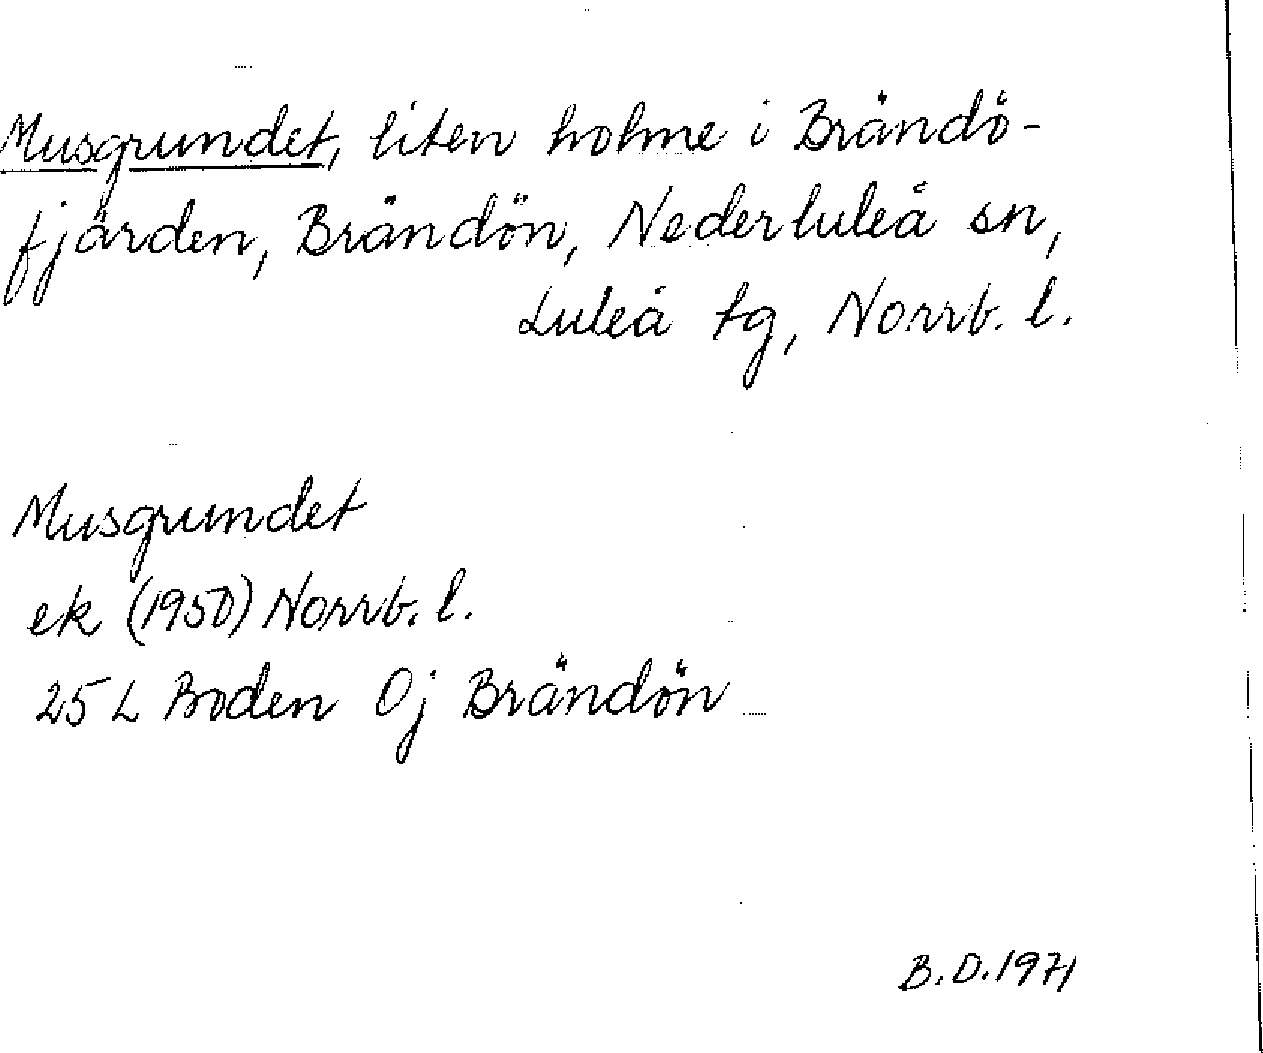 Musgrundet, liten holme i Brändö-
fjärden, Brändön, Nederluleå sn,
Luleå tg, Norrb. l.
Musgrundet
ek (1950) Norrb. l.
25 L Boden Oj Brändön
B.D. 1971